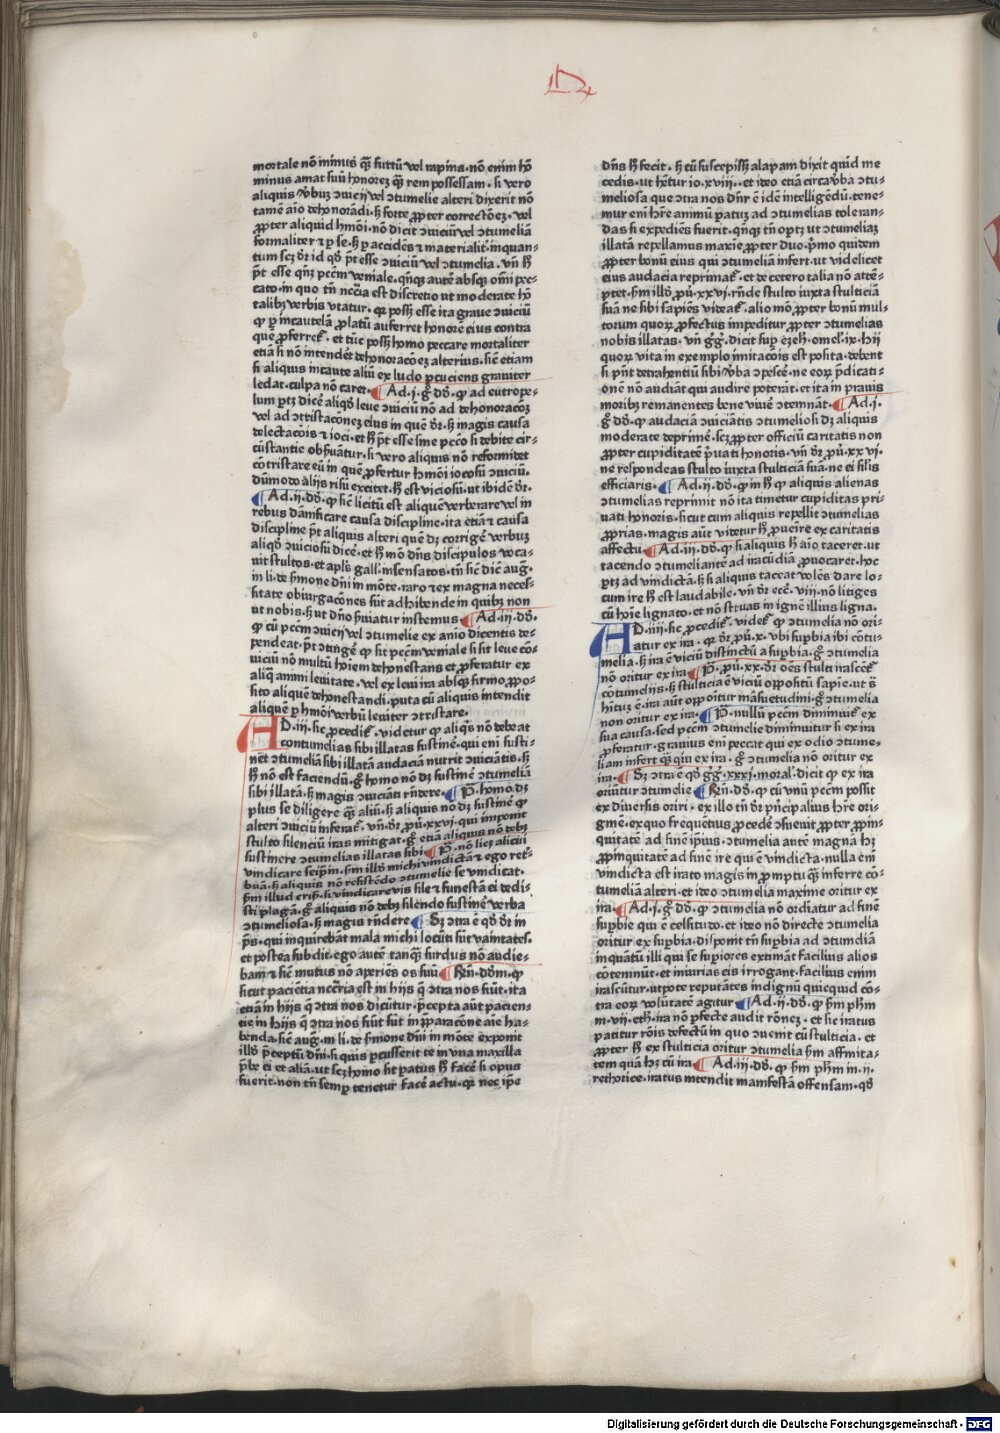 mortale nō minus qȝ furtū vel rapina. nō enim hō
minus amat suū honorez qȝ rem possessam. si vero
aliquis v̄ba ɔuicij vel ɔtumelie alteri dixerit nō
tamē aīo dehonorādi. sꝫ forte ꝓpter correctōez. vel
ꝓpter aliquid hmōi. nō dicit ɔuiciū vel ɔtumeliā
formaliter ⁊ ꝑ se. sꝫ ꝑ accidēs ⁊ materialiť. inquan-
tum scꝫ dr id qđ pt esse ɔuiciū vel ɔtumelia. vn̄ ꝫ
pt esse qn̄ꝫ pccm veniale. qn̄qꝫ autē absqꝫ om̄i pec-
cato. in quo tn̄ nccīa est discretio ut moderate hō
talibꝫ verbis vtatur. qꝛ posset esse ita graue ɔuiciū
ꝙ ꝑ incautelā ꝓlatū auferret honorē eius contra
quē ꝓferret̄. et tūc posset homo peccare mortaliter
etiā si nō intenderet dehonoracōez alterius. sic etiam
si aliquis incaute aliū ex ludo ꝑcuciens grauiter
ledat. culpa nō caret. Ad. j. g̊ dđ. ꝙ ad eutrope-
lum ptꝫ dicē aliqđ leue ɔuiciū nō ad dehonoracōꝫ
vel ad ɔtristacōnez eius in quē dr. sꝫ magis causa
delectacōis ⁊ ioci. et ꝫ pt esse sine pccō si debite cir-
cūstantie obsuātur. si vero aliquis nō reformitet
cōtristare eū in quē ꝓfertur hmōi iocosū ɔuiciū.
dūmodo alijs risū excitet. ꝫ est viciosū. ut ibidē dr.
Ad. ij. dđ. ꝙ sic licitū est aliquē verberare vel in
rebus dāmficare causa discipline. ita etiā ⁊ causa
discipline pt aliquis alteri quē dꝫ corrigē verbuꝫ
aliqđ ɔuiciosū dicē. et ꝫ mō dn̄s discipulos voca-
uit stultos. et apls̄ gall. insensatos. tn̄ sic dic̄ aug.
in li. de ſmone dn̄i in mōte. raro ⁊ ex magna neces-
sitate obiurgacōnes sūt adhibende in quibꝫ non
ut nobis. sꝫ ut dn̄o suiatur instemus. Ad. iij. dđ.
ꝙ cū pccm ɔuicij vel ɔtumelie ex aīo dicentis de-
pendeat. pt ɔtīgē ꝙ sit pccm veniale si sit leue cō-
uiciū nō multū hoīem dehonestans et ꝓferatur ex
aliqᷓ animi leuitate. vel ex leui ira absqꝫ firmo ꝓpo-
sito aliquē dehonestandi. puta cū aliquis intendit
aliquē ꝑ hmōi verbū leuiter ɔtristare.
AD. iij. sic ꝓcedit̄. videtur ꝙ aliqs̄ nō debeat
contumelias sibi illatas sustinē. qui eni susti-
net ɔtumeliā sibi illatā audaciā nutrit ɔuiciātis. sꝫ
ꝫ nō est faciendū. g̊ homo nō dꝫ sustinē ɔtumeliā
sibi illatā. sꝫ magis ɔuiciāti rn̄dere. P̄. homo dꝫ
plus se diligere qȝ aliū. sꝫ aliquis nō dꝫ sustinē ꝙ
alteri ɔuiciū inferat̄. vn̄ dr ꝓū. xxvi. qui imponit
stulto silenciū iras mitigat. g̊ etiā aliquis nō debꝫ
sustinere ɔtumelias illatas sibi. P̄. nō licꝫ alicui
vindicare seipm. sm illđ michi vindictā ⁊ ego ret-
buā. sꝫ aliquis nō resistēdo ɔtumelie se vindicat.
sm illud cris̄. si vindicare vis sile ⁊ funestā ei dedi-
sti plagā. g̊ aliquis nō debꝫ silendo sustinē verba
ɔtumeliosa. sꝫ magis rn̄dere Sꝫ ɔtra ē qđ dr in
ps̄. qui inquirebāt mala michi locūti sūt vanitates.
et postea subdit. ego autē tanqȝ surdus nō audie-
bam ⁊ sic mutus nō aperiēs os suū Rn̄. dđm. ꝙ
sicut paciētia nccīa est in hijs q̄ ɔtra nos fiūt. ita
etiā in hijs q̄ ɔtra nos dicūtur. pcepta aūt pacien-
tie in hijs q̄ ɔtra nos fiūt sūt in ꝑparacōne aīe ha-
benda. sic aug. in li. de ſmone dn̄i in mōte exponit
illđ pceptū dn̄i. si quis ꝑcusserit te in vna maxilla
pbe ei et aliā. ut scꝫ homo sit paratus ꝫ facē si opus
fuerit. non tn̄ semꝑ tenetur facē actu. qꝛ nec ipe
dn̄s ꝫ fecit. sꝫ cū suscepisset alapam dixit quid me
cedis. ut hetur io. xviij. et ideo etiā circa v̄ba ɔtu-
meliosa que ɔtra nos dnr ē idē intelligēdū. tene-
mur eni hre animū paratuꝫ ad ɔtumelias toleran-
das si expediēs fuerit. qn̄qꝫ tn̄ optꝫ ut ɔtumeliaꝫ
illatā repellamus maxīe ꝓpter duo. pmo quidem
ꝓpter bonū eius qui ɔtumeliā infert. ut videlicet
eius audacia reprimat̄. et de cetero talia nō attē-
ptet. sm illđ ꝓū. xxvi. rn̄de stulto iuxta stulticiā
suā ne sibi sapiēs videat̄. alio mō ꝓpter bonū mul-
torum quoꝝ ꝓfectus impeditur ꝓpter ɔtumelias
nobis illatas. vn̄ g̊g̊. dicit suꝑ ezeħ. omel. ix. hij
quoꝝ vita in exemplo imitacōis est posita. debent
si pn̄t detrahentiū sibi v̄ba ɔpescē. ne eoꝝ pdicati-
onē nō audiāt qui audire poterāt. et ita in prauis
moribꝫ remanentes bene viuē ɔtemnāt. Ad. j.
g̊ dđ. ꝙ audaciā ɔuiciātis ɔtumeliosi dꝫ aliquis
moderate deprimē. scꝫ ꝓpter officiū caritatis non
ꝓpter cupiditatē puati honoris. vn̄ dr ꝓū. xxvi.
ne respondeas stulto iuxta stulticiā suā. ne ei silis
efficiaris. Ad. ij. dđ. ꝙ in ꝫ ꝙ aliquis alienas
ɔtumelias reprimit nō ita timetur cupiditas pri-
uati honoris. sicut cum aliquis repellit ɔtumelias
ꝓprias. magis aūt videtur ꝫ ꝓuenire ex caritatis
affectu. Ad. iij. dđ. ꝙ si aliquis ꝫ aīo taceret. ut
tacendo ɔtumeliantē ad iracūdiā ꝓuocaret. hoc
ptꝫ ad vindictā. sꝫ si aliquis taceat volēs dare lo-
cum ire ꝫ est laudabile. vn̄ dr ecc̄. viij. nō litiges
cū hoīe lignato. et nō struas in ignē illius ligna.
AD. iiij. sic ꝓcedit̄. videt̄ ꝙ ɔtumelia nō ori-
atur ex ira. qꝛ dr ꝓū. x. vbi suꝑbia ibi cōtu-
melia. sꝫ ira ē viciū distinctū a suꝑbia. g̊ ɔtumelia
nō oritur ex ira P̄. ꝓū. xx. dr oēs stulti miscēt̄
cōtumelijs. sꝫ stulticia ē viciū oppositū sapīe. ut s̄
hītuꝫ ē. ira aūt opponitur māsuetudini. g̊ ɔtumelia
non oritur ex ira. P̄. nullū pccm diminuit̄ ex
sua causa. sed pccm ɔtumelie diminuitur si ex ira
ꝓferatur. grauius eni peccat qui ex odio ɔtume-
liam infert qȝ qui ex ira. g̊ ɔtumelia nō oritur ex
ira. Sꝫ ɔtra ē qđ g̊g̊. xxxj. moral. dicit ꝙ ex ira
oriūtur ɔtumelie Rn̄. dđ. ꝙ cū vnū pccm possit
ex diuersis oriri. ex illo tn̄ dr pncipalius hre ori-
ginē. ex quo frequētius ꝓcedē ɔsueuit ꝓpter ꝓpin-
quitatē ad finē ipius. ɔtumelia autē magnā hꝫ
ꝓpinquitatē ad finē ire qui ē vindicta. nulla eni
vindicta est irato magis in promptu qȝ inferre cō-
tumeliā alteri. et ideo ɔtumelia maxime oritur ex
ira. Ad. j. g̊ dđ. ꝙ ɔtumelia nō ordiatur ad finē
suꝑbie qui ē celsitudo. et ideo nō directe ɔtumelia
oritur ex suꝑbia. disponit tn̄ suꝑbia ad ɔtumeliā
inquātū illi qui se suꝑiores extimāt facilius alios
cōtemnūt. et iniurias eis irrogant. facilius enim
irascūtur. utpote reputātes indignū quicquid cō-
tra eoꝝ volūtatē agitur Ad. ij. dđ. ꝙ sm phm
in. vij. eth. ira nō ꝑfecte audit rōneꝫ. et sic iratus
patitur rōis defectū in quo ɔuenit cū stulticia. et
ꝓpter ꝫ ex stulticia oritur ɔtumelia sm affinita-
tem quā hꝫ cū ira. Ad. iij. dđ. ꝙ sm phm in. ij.
rethorice. iratus intendit manifestā offensam. qđ
Digitalisierung gefördert durch die Deutsche Forschungsgemeinschaft - DFG